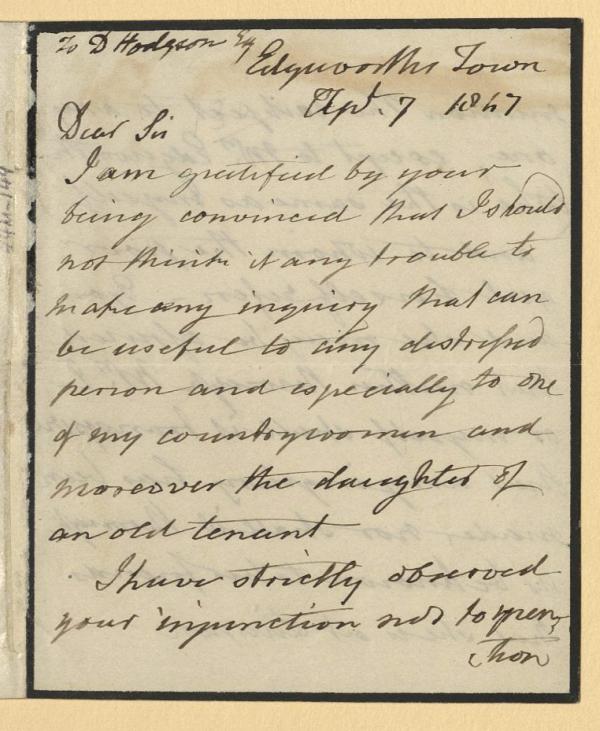 To D Hodgson Esq
Edgeworths Town
Apl. 7 1847
Dear Sir
I am gratified by your
being convinced that I should
not think it any trouble to
make any inquiry that can
be useful to any distressed
person and especially to one
of my countrywomen and
moreover the daughter of
an old tenant
I have strictly observed
your injunction not to men-
tion